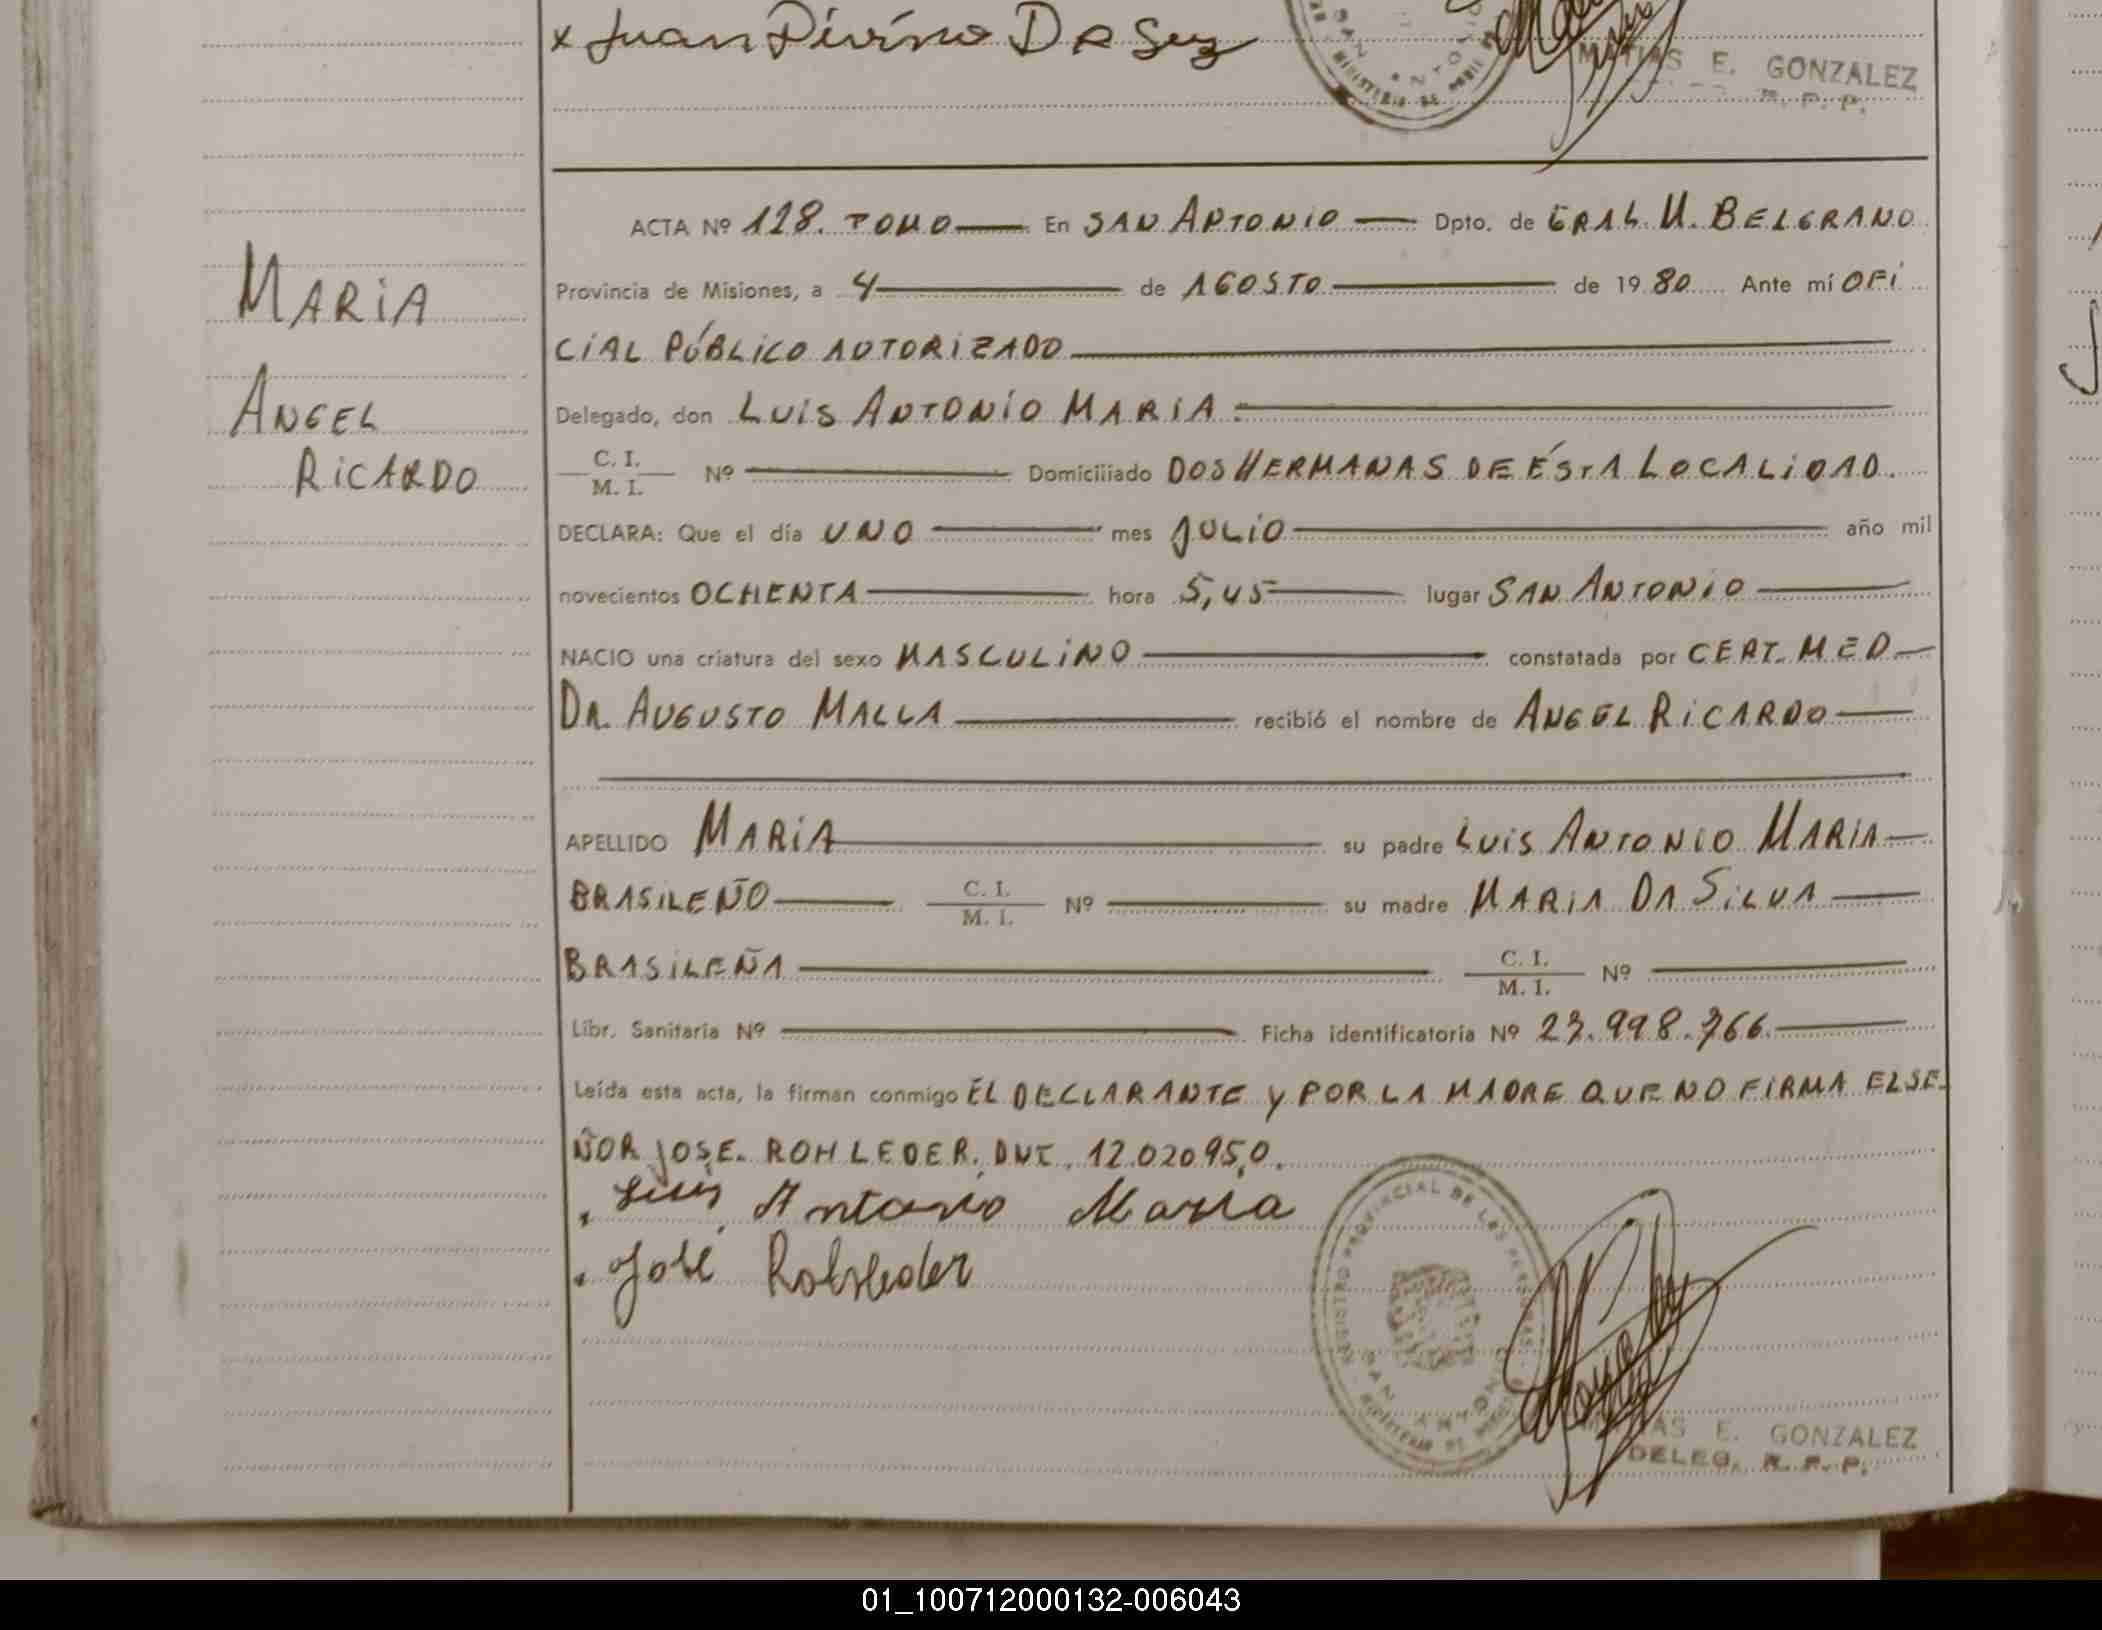 x Juan Divino Da Suz
MATIAS E. GONZALEZ
R. P. P.
ACTA Nº 128. TOMO En SAN ANTONIO Dpto. de GRAL. M. BELGRANO
Provincia de Misiones, a 4 de AGOSTO de 1980 Ante mí OFI
CIAL PÚBLICO AUTORIZADO
MARIA
Delegado, don LUIS ANTONIO MARIA
ANGEL
C. I.
M. I. Nº Domiciliado DOS HERMANAS DE ÉSTA LOCALIDAD.
RICARDO
DECLARA: Que el día UNO mes JULIO año mil
novecientos OCHENTA hora 5,45 lugar SAN ANTONIO
NACIO una criatura del sexo MASCULINO constatada por CERT. MED
DR. AUGUSTO MALLA recibió el nombre de ANGEL RICARDO
APELLIDO MARIA su padre LUIS ANTONIO MARIA
BRASILEÑO C. I.
M. I. Nº su madre MARIA DA SILVA
BRASILEÑA C. I.
M. I. Nº
Libr. Sanitaria Nº Ficha identificatoria Nº 27.998.766.
Leída esta acta, la firman conmigo ÉL DECLARANTE Y POR LA MADRE QUE NO FIRMA EL SE-
ÑOR JOSE. ROHLEDER. DNI. 12.020950.
Luis Antonio Maria
José Rohleder
REGISTRO PROVINCIAL DE LAS PERSONAS
SAN ANTONIO
E. GONZALEZ
DELEG. R. P. P.
01_100712000132-006043